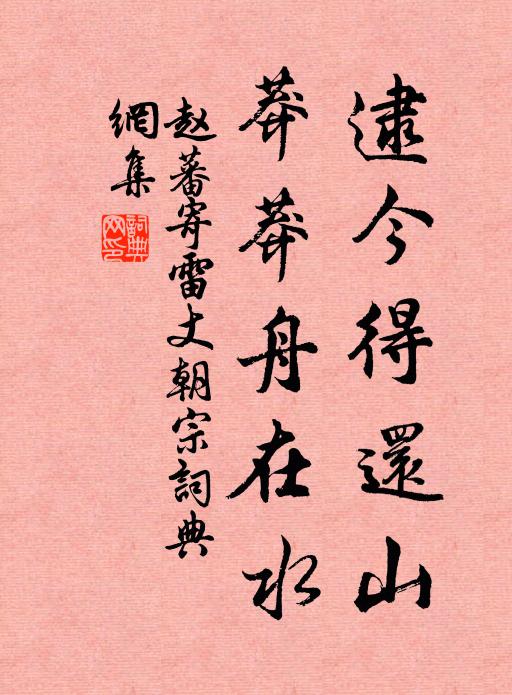 逮今得還山
莽莽舟在水
赵蕃寄雷丈朝宗詞典
網集
詞典
网印